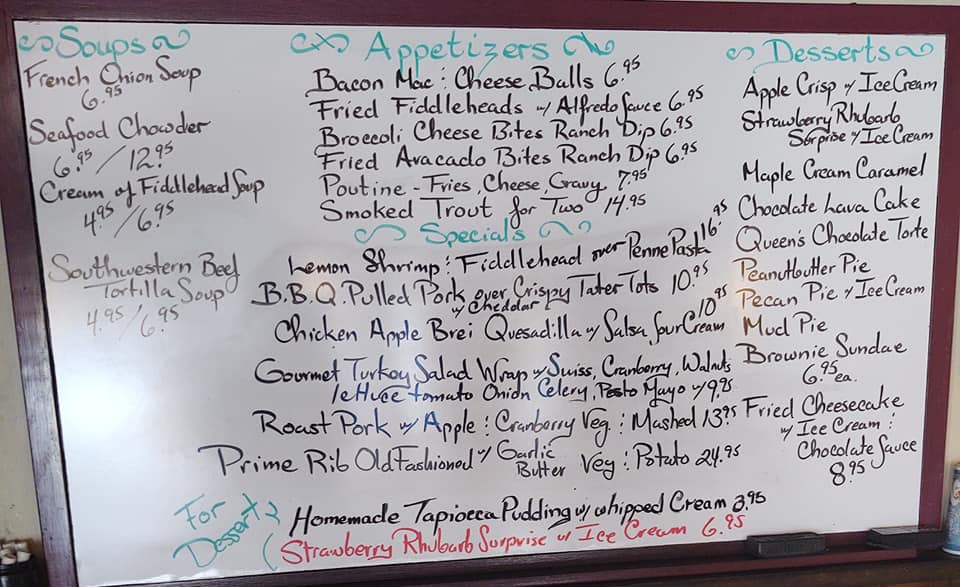 Soups
French Onion Soup
6.95
Seafood Chowder
6.95/12.95
Cream of Fiddlehead Soup
4.95/6.95
Southwestern Beef
Tortilla Soup
4.95/6.95
Appetizers
Bacon Mac : Cheese Balls 6.95
Fried Fiddleheads w/ Alfredo Sauce 6.95
Broccoli Cheese Bites Ranch Dip 6.95
Fried Avacado Bites Ranch Dip 6.95
Poutine - Fries, Cheese, Gravy 7.95
Smoked Trout for Two 14.95
Specials
Lemon Shrimp : Fiddlehead over Penne Pasta 16.95
B.B.Q. Pulled Pork over Crispy Tater Tots 10.95
w/ Cheddar
Chicken Apple Brei Quesadilla w/ Salsa Sour Cream 10.95
Gourmet Turkey Salad Wrap w/ Swiss, Cranberry, Walnuts
lettuce tomato Onion Celery, Pesto Mayo 9.95
Roast Pork w/ Apple : Cranberry Veg : Mashed 13.95
Prime Rib Old Fashioned w/ Garlic
Butter Veg : Potato 24.95
Desserts
Apple Crisp w/ Ice Cream
Strawberry Rhubarb
Surprise w/ Ice Cream
Maple Cream Caramel
Chocolate Lava Cake
Queen's Chocolate Torte
Peanutbutter Pie
Pecan Pie w/ Ice Cream
Mud Pie
Brownie Sundae
6.95 ea.
Fried Cheesecake
w/ Ice Cream :
Chocolate Sauce
8.95
For
Dessert
Homemade Tapiocca Pudding w/ whipped Cream 3.95
Strawberry Rhubarb Surprise w/ Ice Cream 6.95